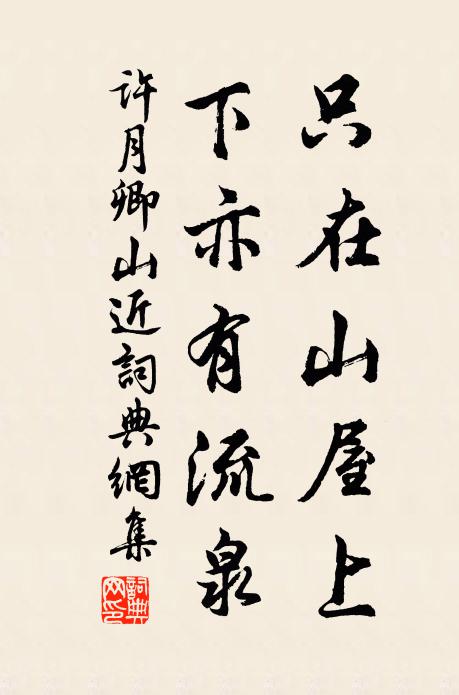 只在山屋上
下亦有流泉
许月卿山近詞典網集
詞典網印